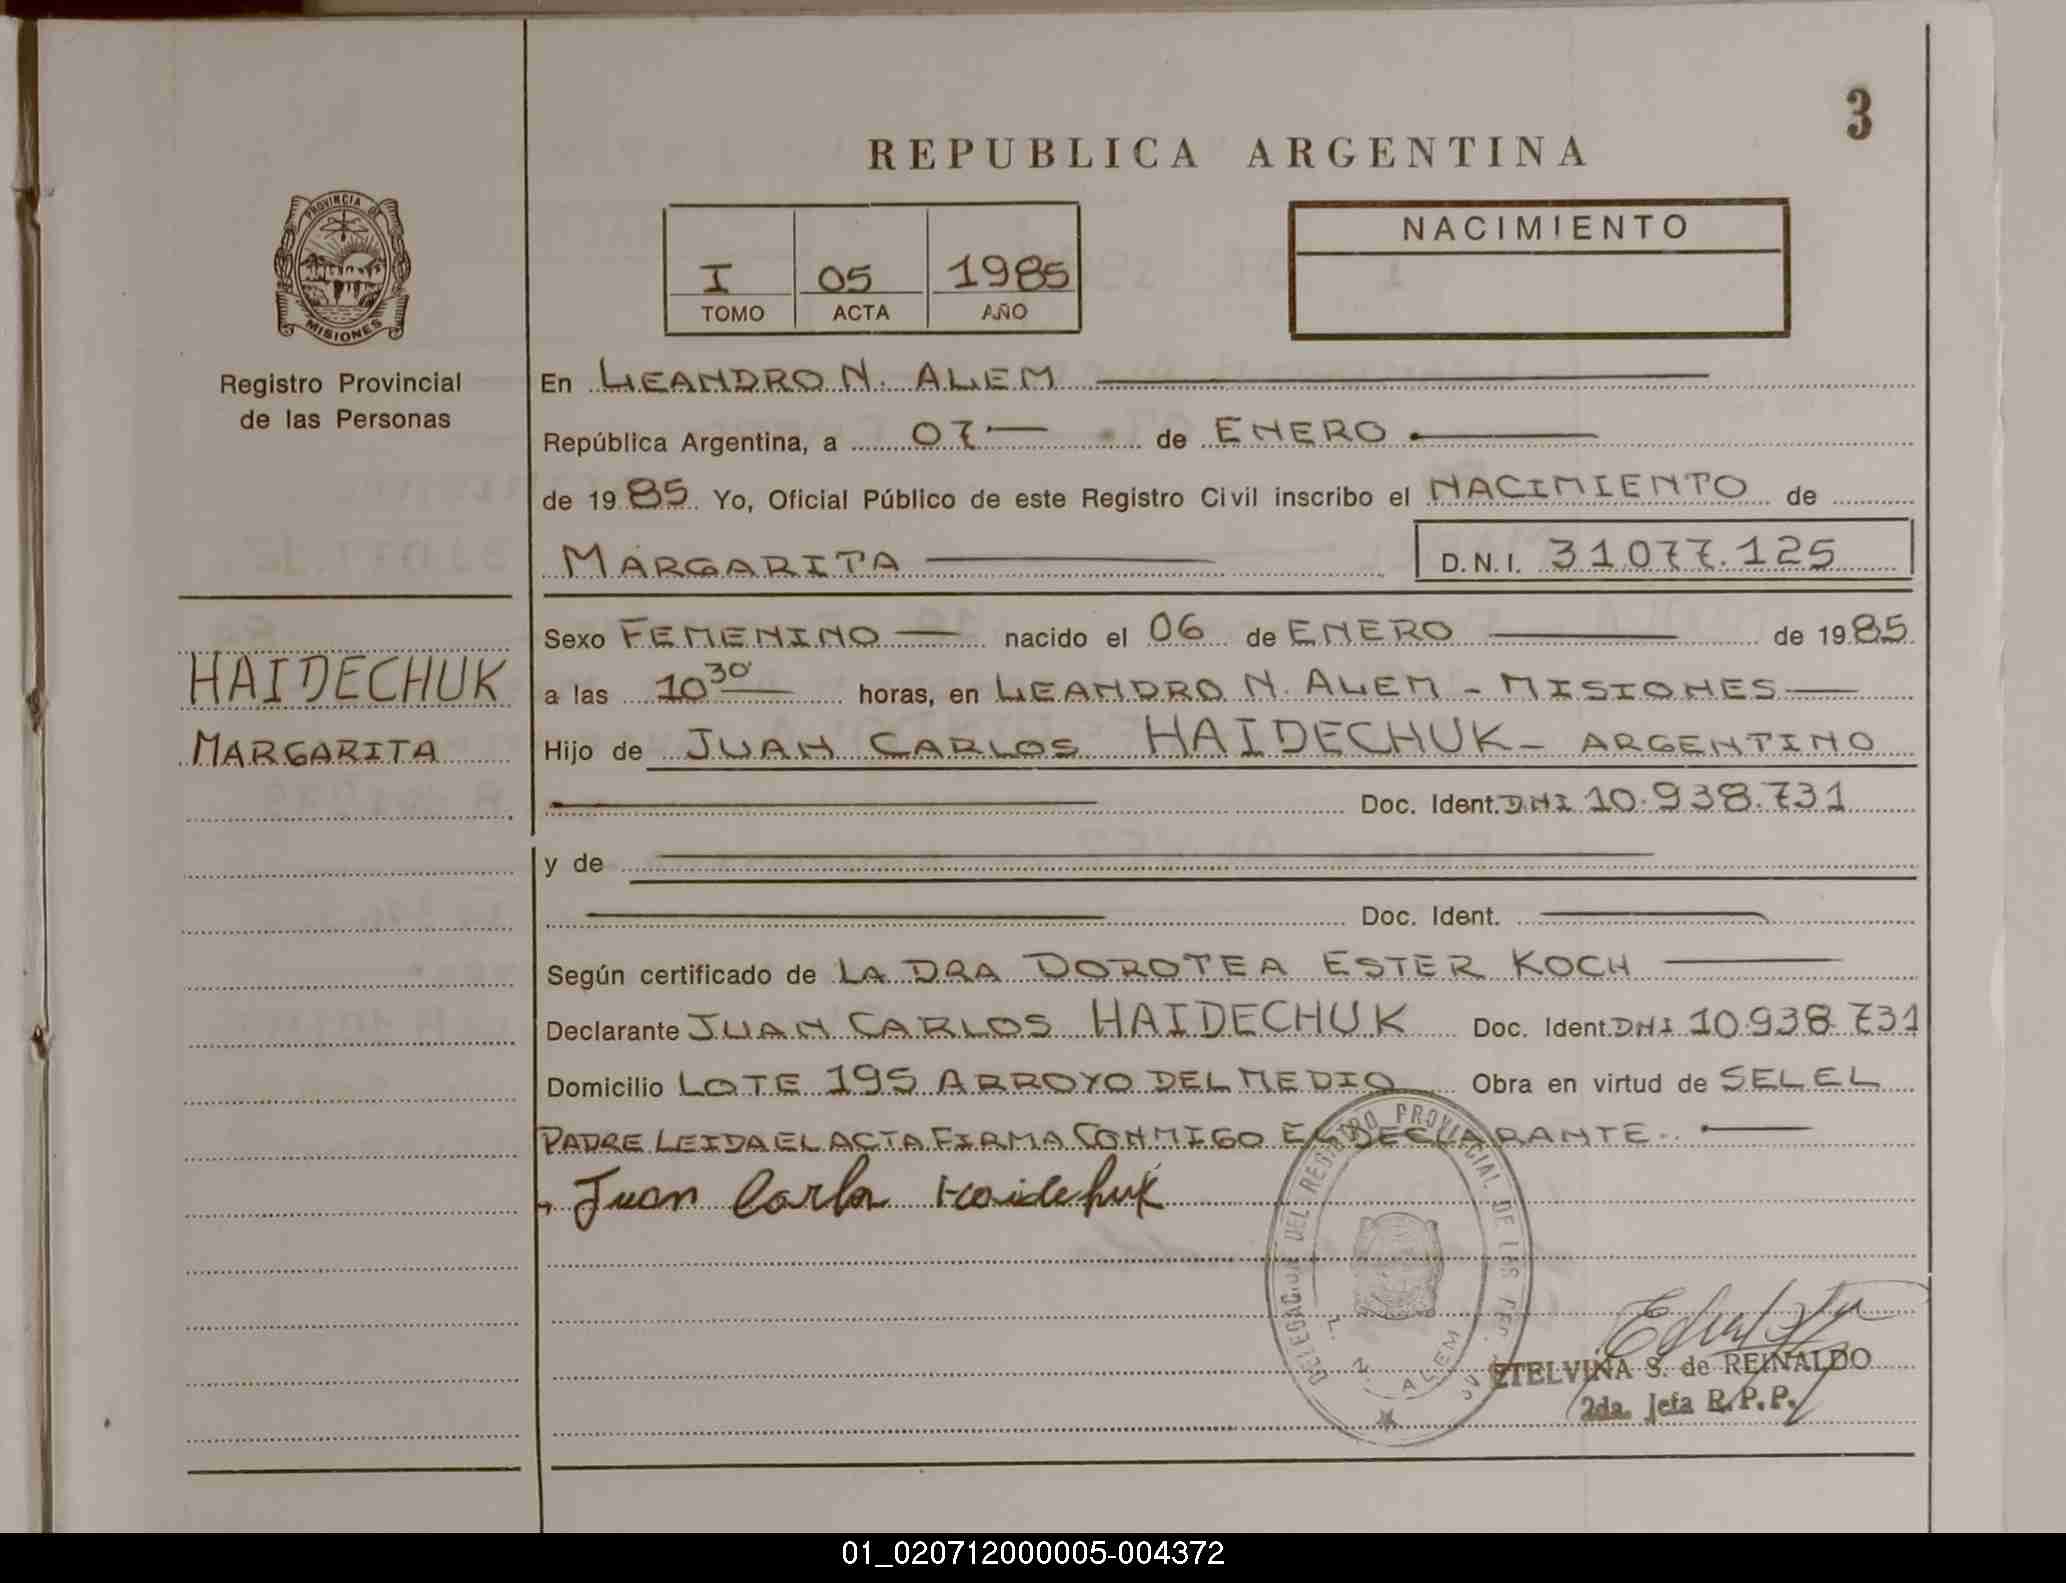 3
REPUBLICA ARGENTINA
PROVINCIA DE
MISIONES
Registro Provincial
de las Personas
I 05 1985
TOMO ACTA AÑO
NACIMIENTO
En LEANDRO N. ALEM
República Argentina, a 07 de ENERO
de 1985 Yo, Oficial Público de este Registro Civil inscribo el NACIMIENTO de
MARGARITA D.N.I. 31.077.125
HAIDECHUK
MARGARITA
Sexo FEMENINO nacido el 06 de ENERO de 1985
a las 10 30' horas, en LEANDRO N. ALEM - MISIONES
Hijo de JUAN CARLOS HAIDECHUK - ARGENTINO
Doc. Ident. DNI 10.938.731
y de
Doc. Ident.
Según certificado de LA DRA DOROTEA ESTER KOCH
Declarante JUAN CARLOS HAIDECHUK Doc. Ident. DNI 10.938.731
Domicilio LOTE 195 ARROYO DEL MEDIO Obra en virtud de SELEL
PADRE LEIDA EL ACTA FIRMA CONMIGO EL DECLARANTE.
Juan Carlos Haidechuk
DELEGACION DEL REGISTRO PROVINCIAL DE LAS PERS.
L. N. ALEM
ETELVINA S. de REINALDO
2da. Jefa R.P.P.
01_020712000005-004372